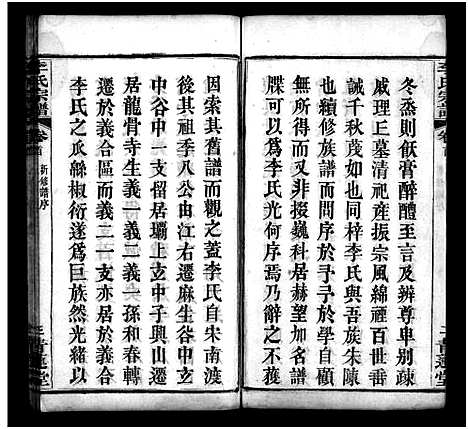 冬烝則飫膏醉醴至言及辨尊卑别疎
戚理丕墓清祀產振宗風綿禋百世血
誠千秋茂如同梓李氏與吾族朱陳
也續修族譜而問序於予予於學自顧
無所得而又非掇巍科居赫望加名寵
牒可以爲李氏光何序焉乃辭之不獲
因索其舊譜而觀之蓋李氏自宋南渡
後其祖季八公由江右遷麻生谷中谷
中谷中一支留居壩上中子興山遷
居龍骨寺生義一義二義一孫和春轉
徙於義合區而義二一支亦居於義合
李氏之瓜緜椒衍遂爲巨族然光緒以
李氏宗譜
卷首
新修譜序